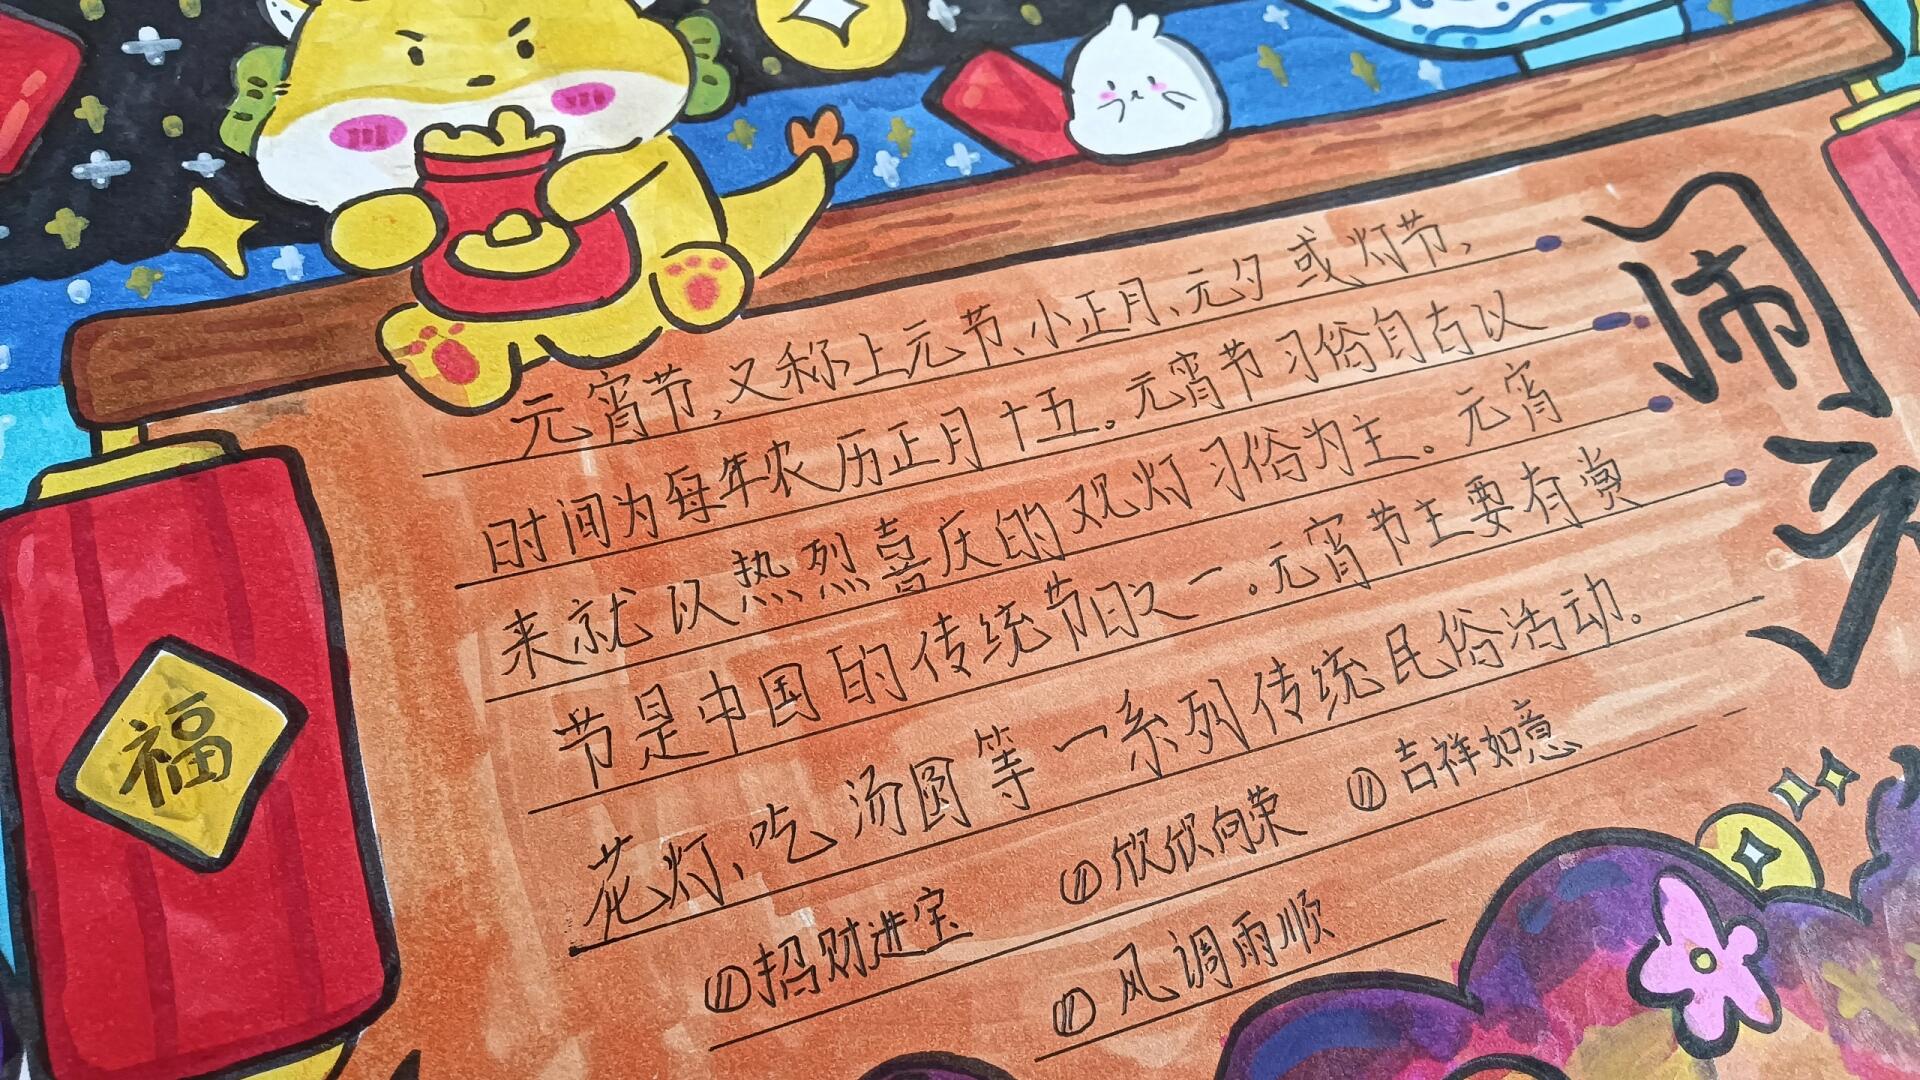 元宵节,又称上元节、小正月、元夕或灯节,
时间为每年农历正月十五。元宵节习俗自古以
来就以热烈喜庆的观灯习俗为主。元宵
节是中国的传统节日之一。元宵节主要有赏
花灯、吃汤圆等一系列传统民俗活动.
招财进宝
欣欣向荣
吉祥如意
风调雨顺
闹元
福